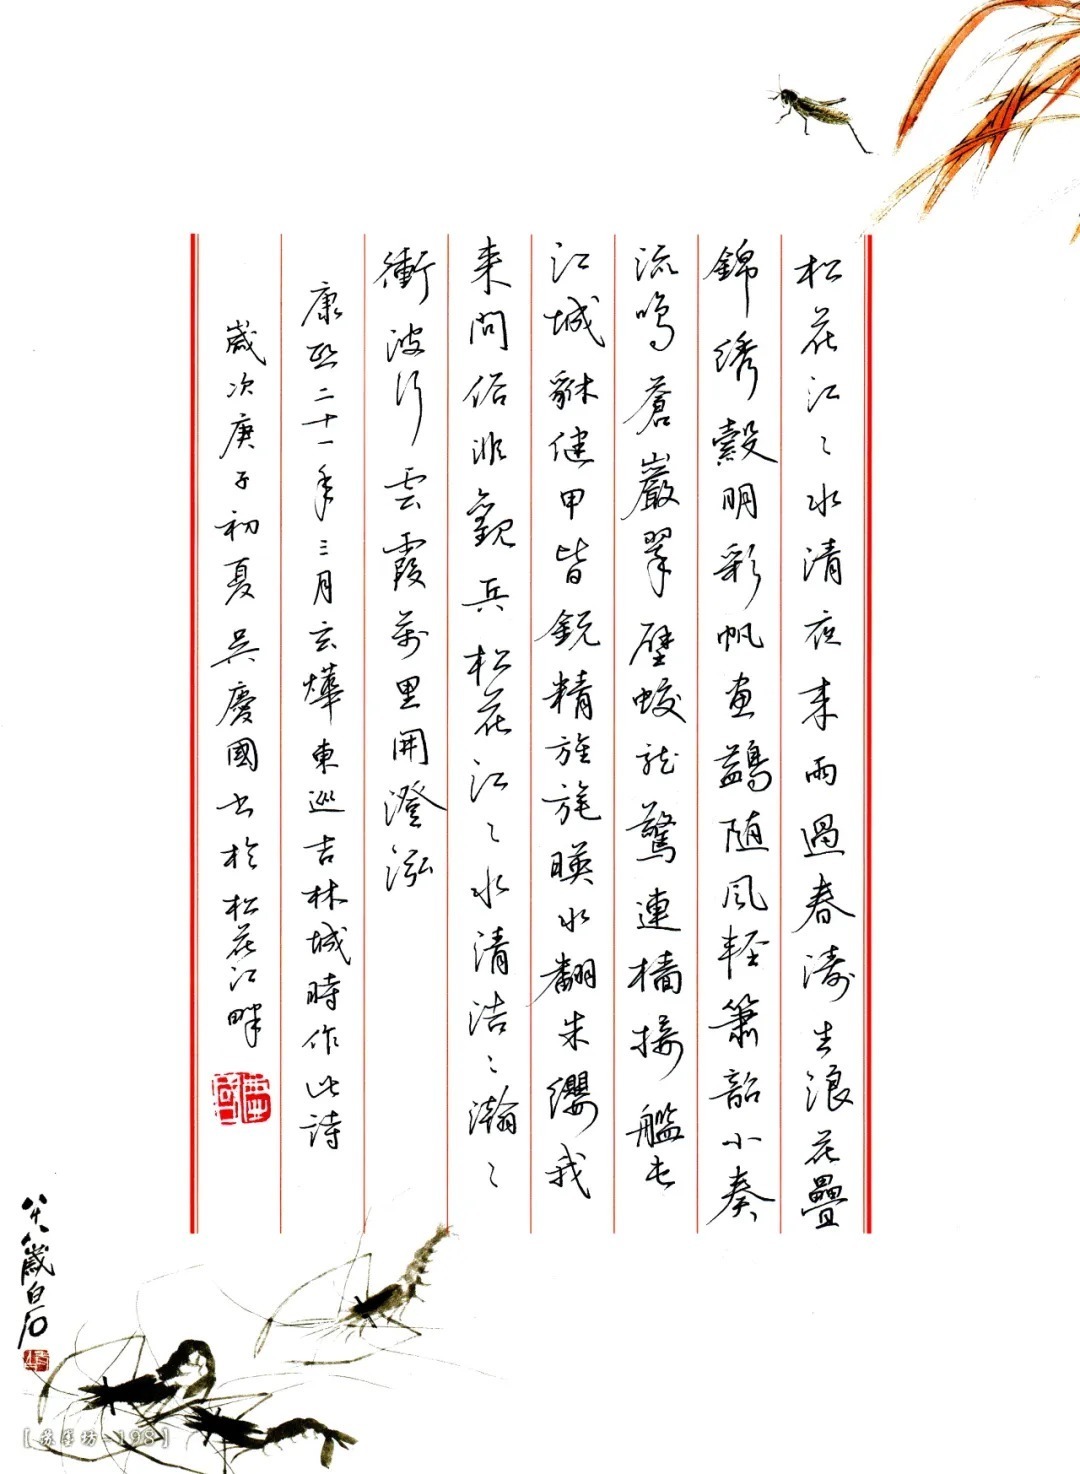 松花江〻水清夜来雨過春濤生浪花疊
錦綉縠明彩帆畫鷁随風輕簫韶小奏
流鳴蒼巖翠壁蛟龙驚連檣接艦屯
江城貅健甲皆銳精旌旄暎水翻朱纓我
来問俗非觀兵松花江〻水清浩〻瀚〻
衝波行雲霞萬里開澄泓
康熙二十一年三月玄燁東巡吉林城時作此诗
嵗次庚子初夏吴慶國书於松花江畔
八十八歲白石
【茶座坊-198】